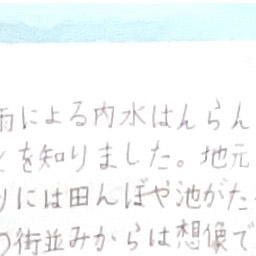 雨による内水はんらん
を知りました。地元
りには田んぼや池がた
の街並みからは想像で